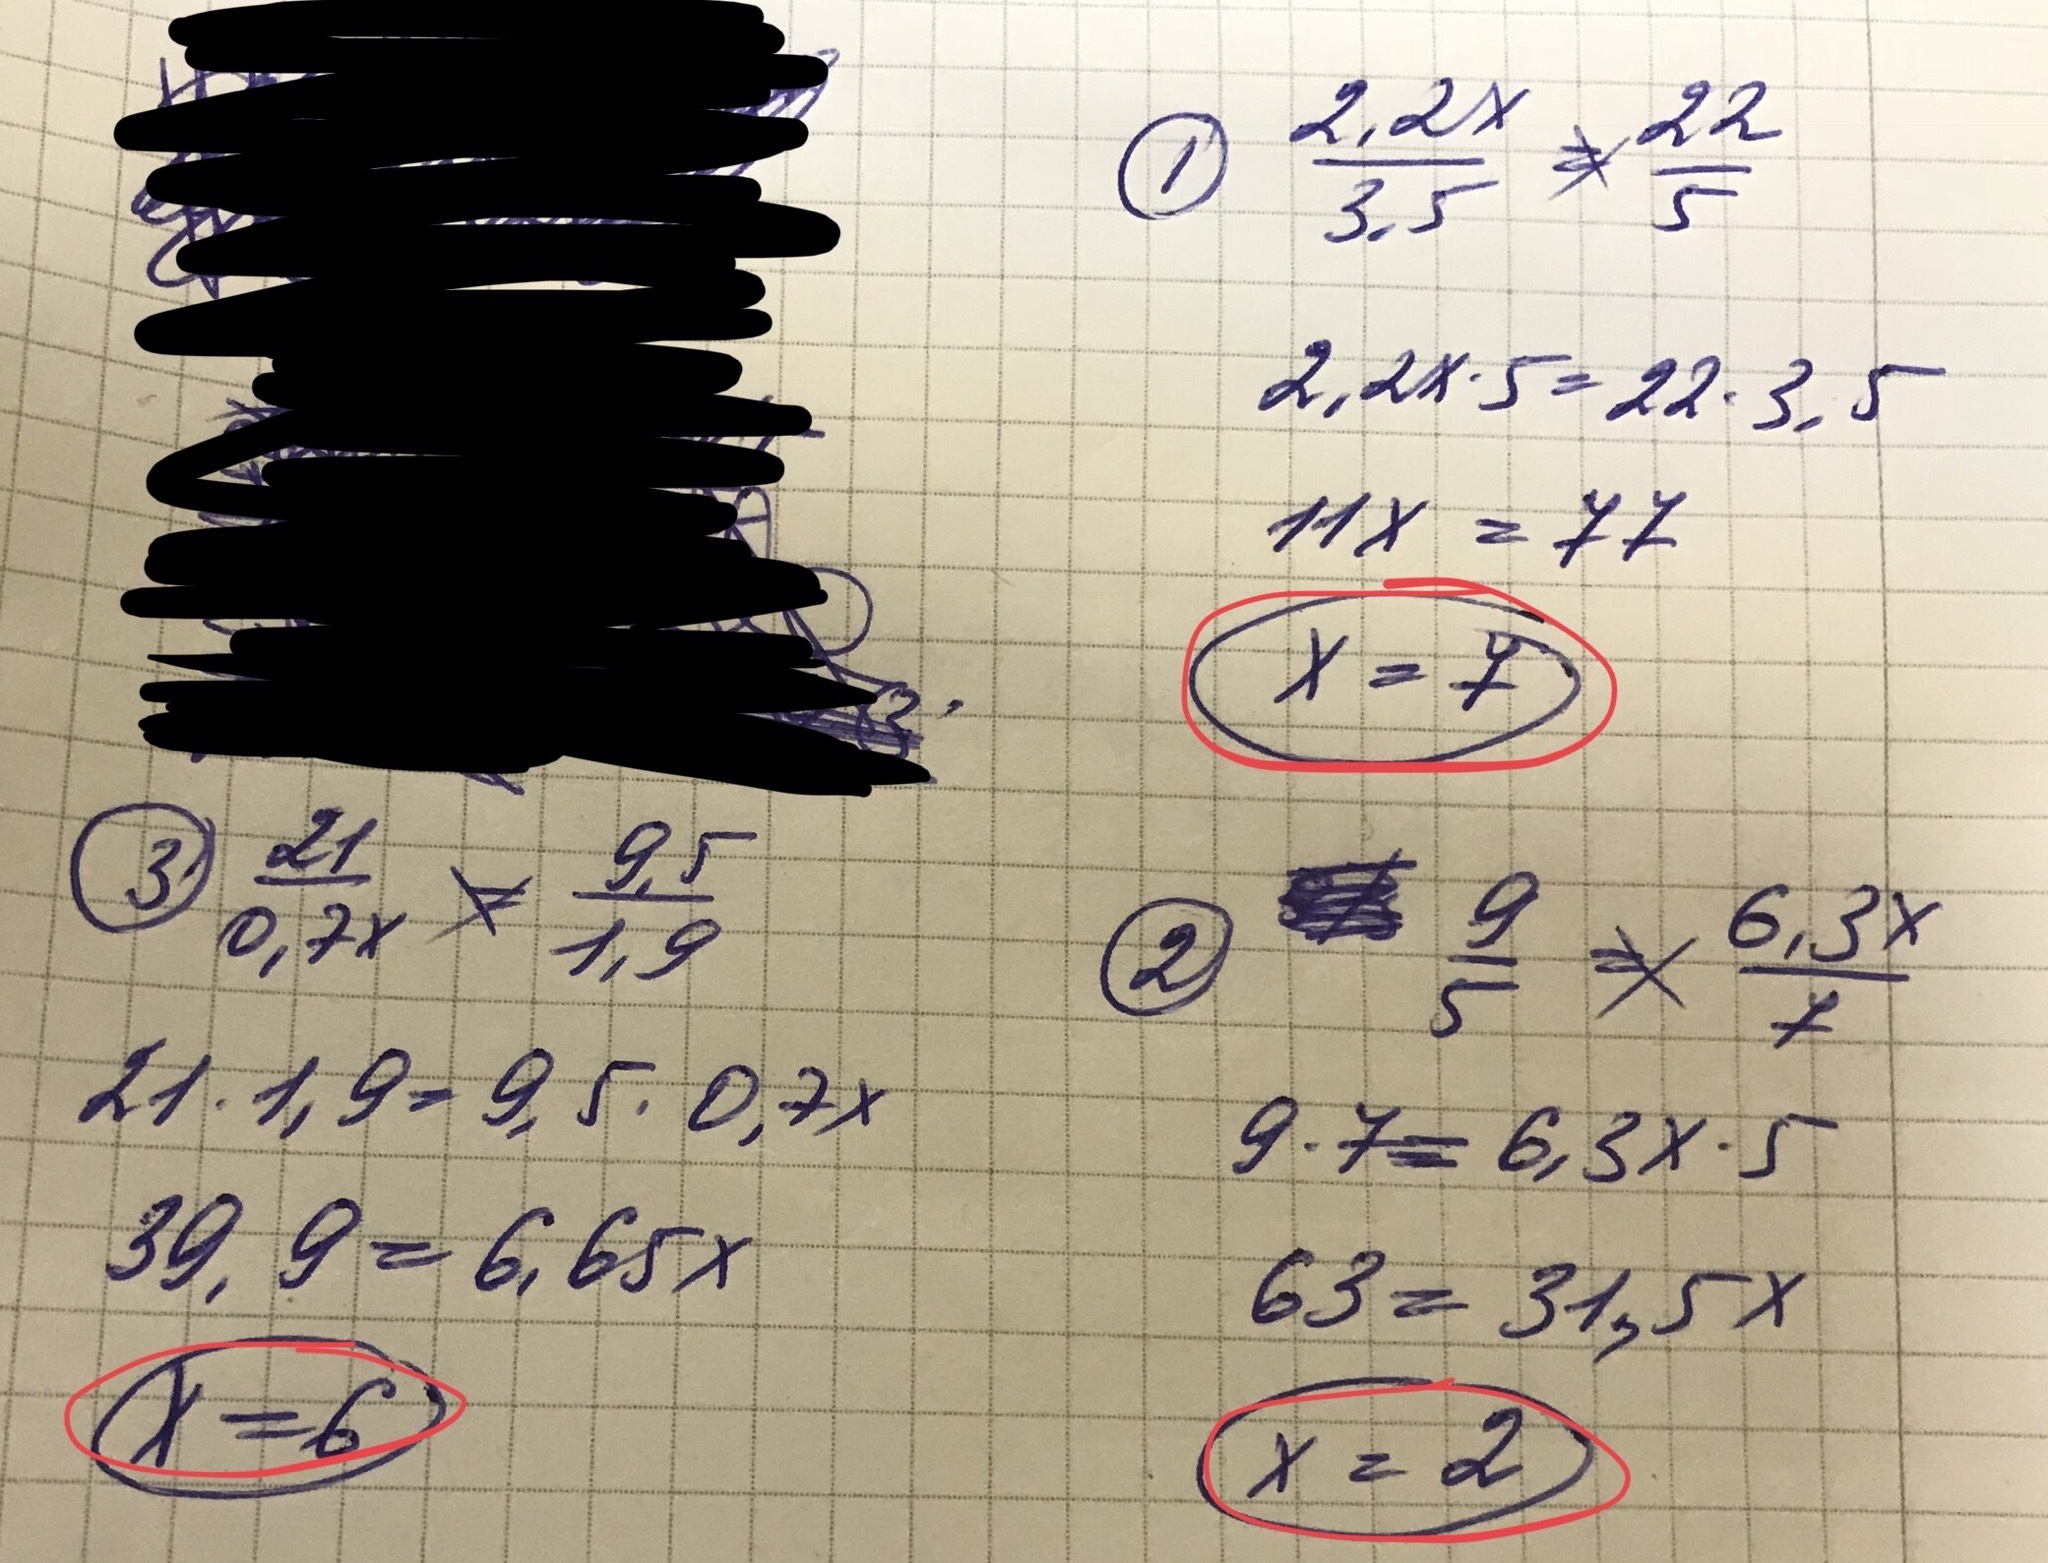 ① 2,2x/3,5 = 22/5
2,2x·5=22·3,5
11x = 77
x = 7
② 9/5 = 6,3x/7
9·7=6,3x·5
63=31,5x
x = 2
③ 21/0,7x = 9,5/1,9
21·1,9=9,5·0,7x
39,9=6,65x
x=6